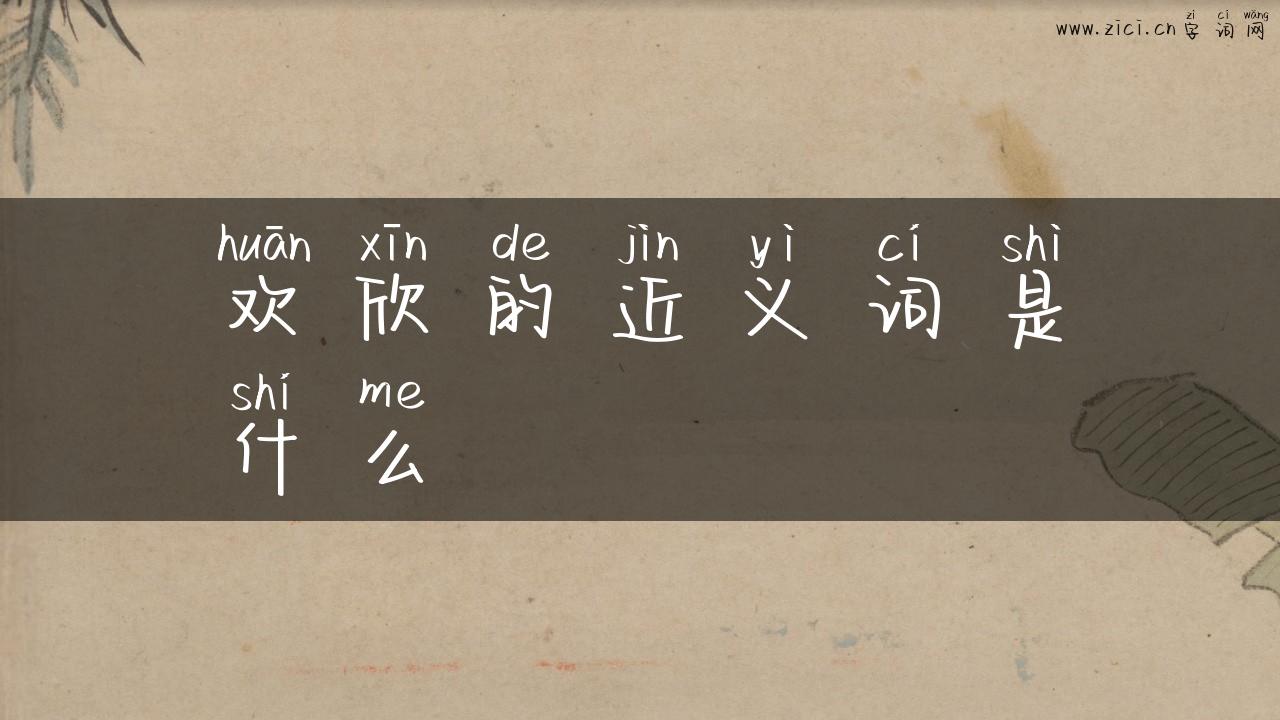 zì cí wǎng
www.zici.cn 字 词 网
huān xīn de jìn yì cí shì
欢 欣 的 近 义 词 是
shí me
什 么